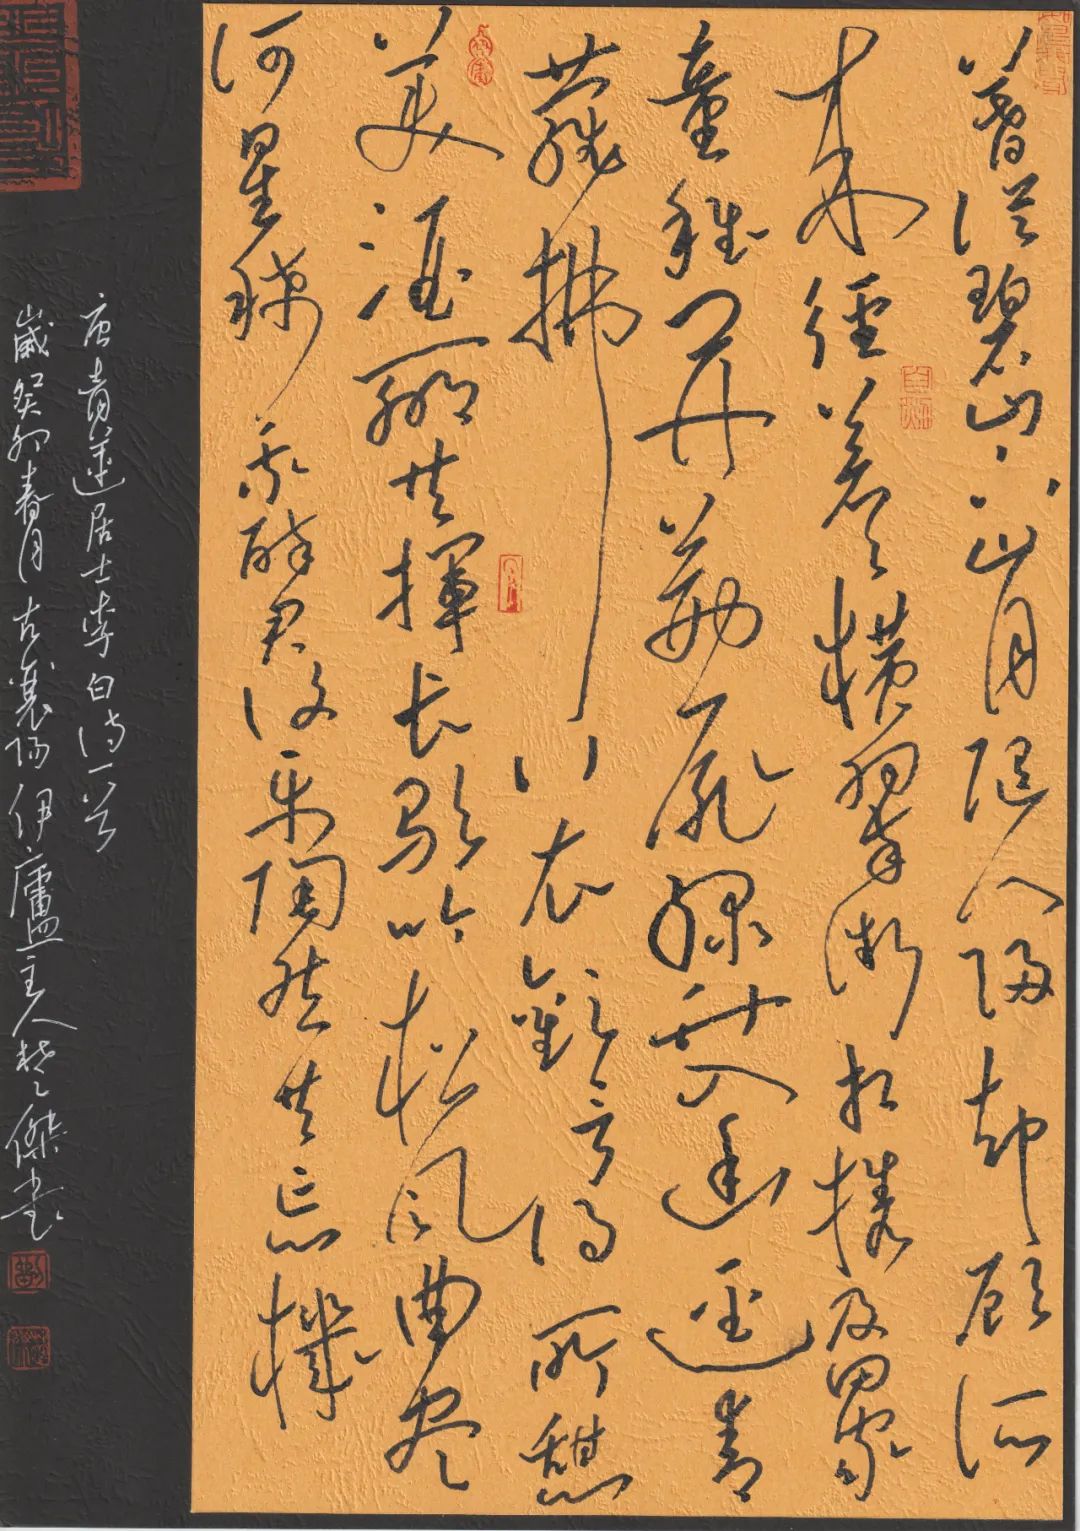 暮從碧山下山月隨人歸却顧所
來徑蒼々橫翠微相攜及田家
童稚開荊扉綠竹入幽徑青
蘿拂行衣歡言得所憩
美酒聊共揮長歌吟松風曲盡
河星稀我醉君復樂陶然共忘機
唐青蓮居士李白詩一首
歲癸卯春月古襄陽伊廬主人楚傑書